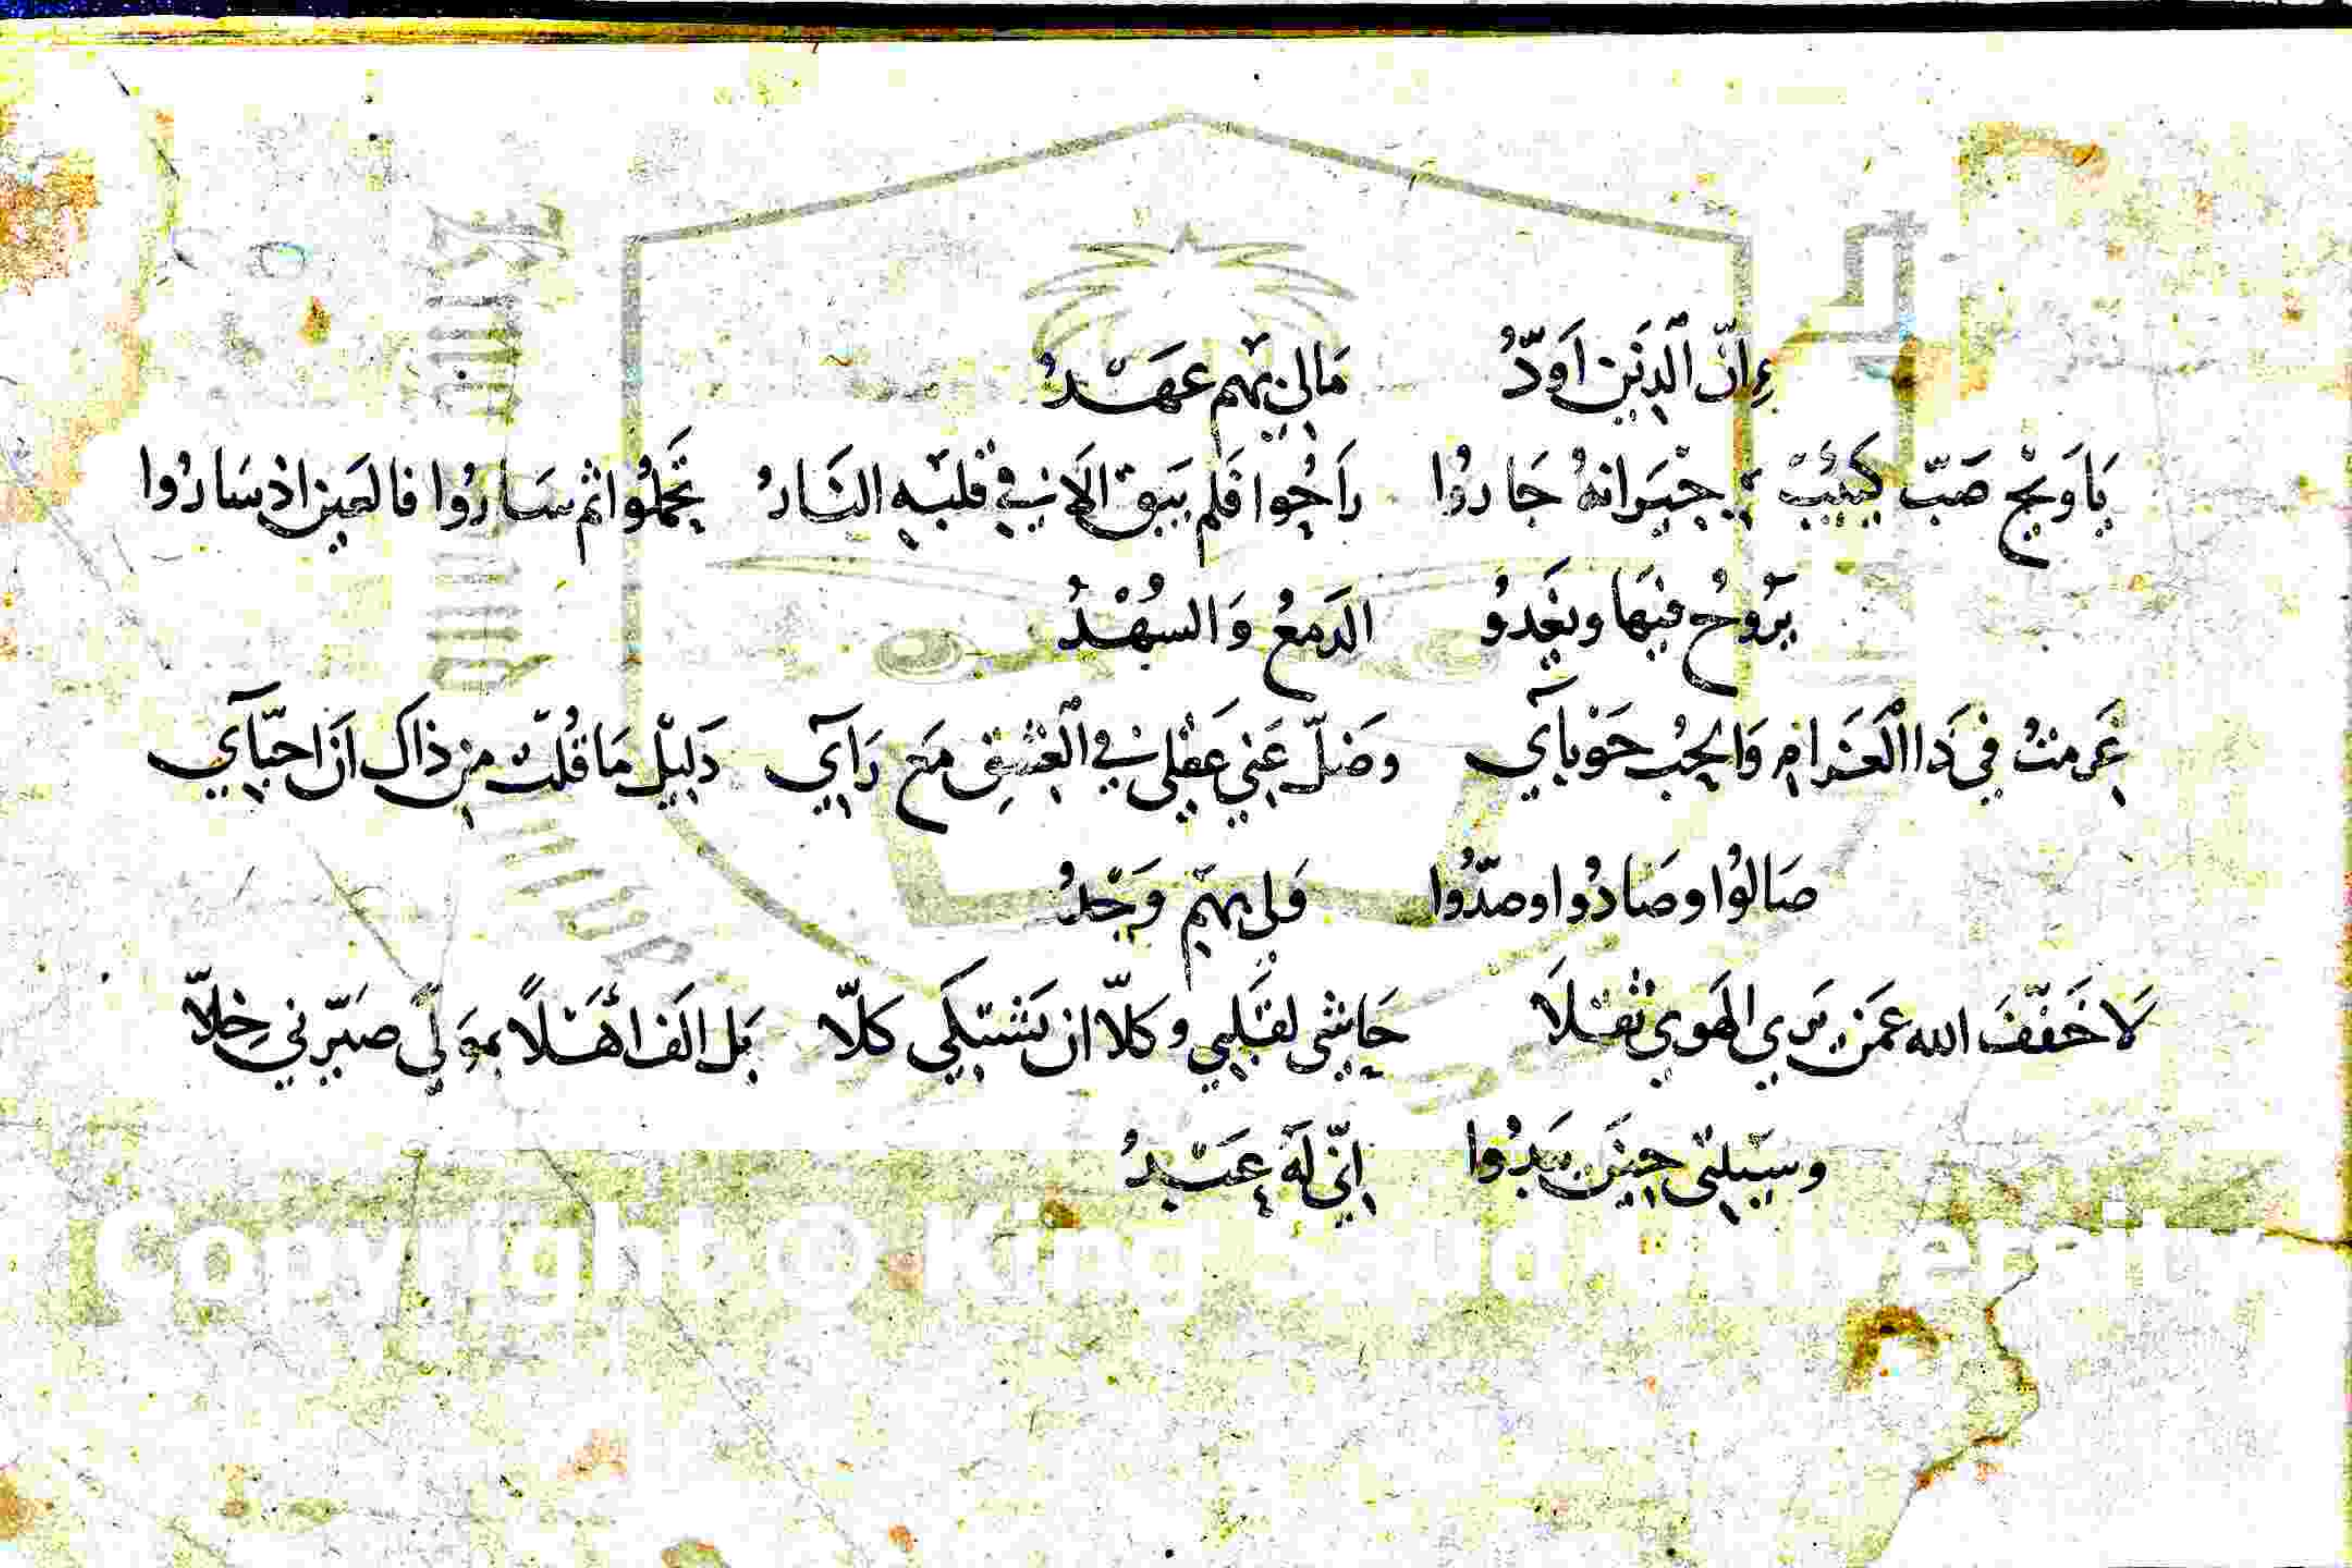 إِنّ الَّذِينَ اَوَدُّ مَالِي بِهِم عَهْدُ
يَا وَيْحَ صَبّ كَئِيْبٌ جِيْرَانهُ جَارُوا رَاحُوا فَلم يَبق الَا فِي قلبهِ النَارُ تَحَملُوا ثم سَارُوا فالعَين اذ سَارُوا
يَرُوحُ فيهَا ويَغدوُ الدَمعُ وَالسُهْدُ
غَرمتُ فِي ذَا الْغَرامِ وَالحِبُ حَوْبآيِ وضَلّ عَنِي عَقْلِي فِي الْعِشقِ مَع رَآيِ دَلِيْل مَا قُلت مِن ذاكَ انَ احبّآيِ
صَالوُا وصَادُوا وصَدُّوا وَلِي بهِم وَجْدُ
لَا خَفّفَ الله عَمَن يَرِي الهَوي ثقلَا حَاشي لقَلبِي وكلّا ان يَشتكِي كلّا بَل الَف اهَلًا بموَلًي صَيّرني خِلّا
وسيَبليّ حِينَ يَبدُوا اِنّي لهَ عَبْدُ
Copyright © King Saud University